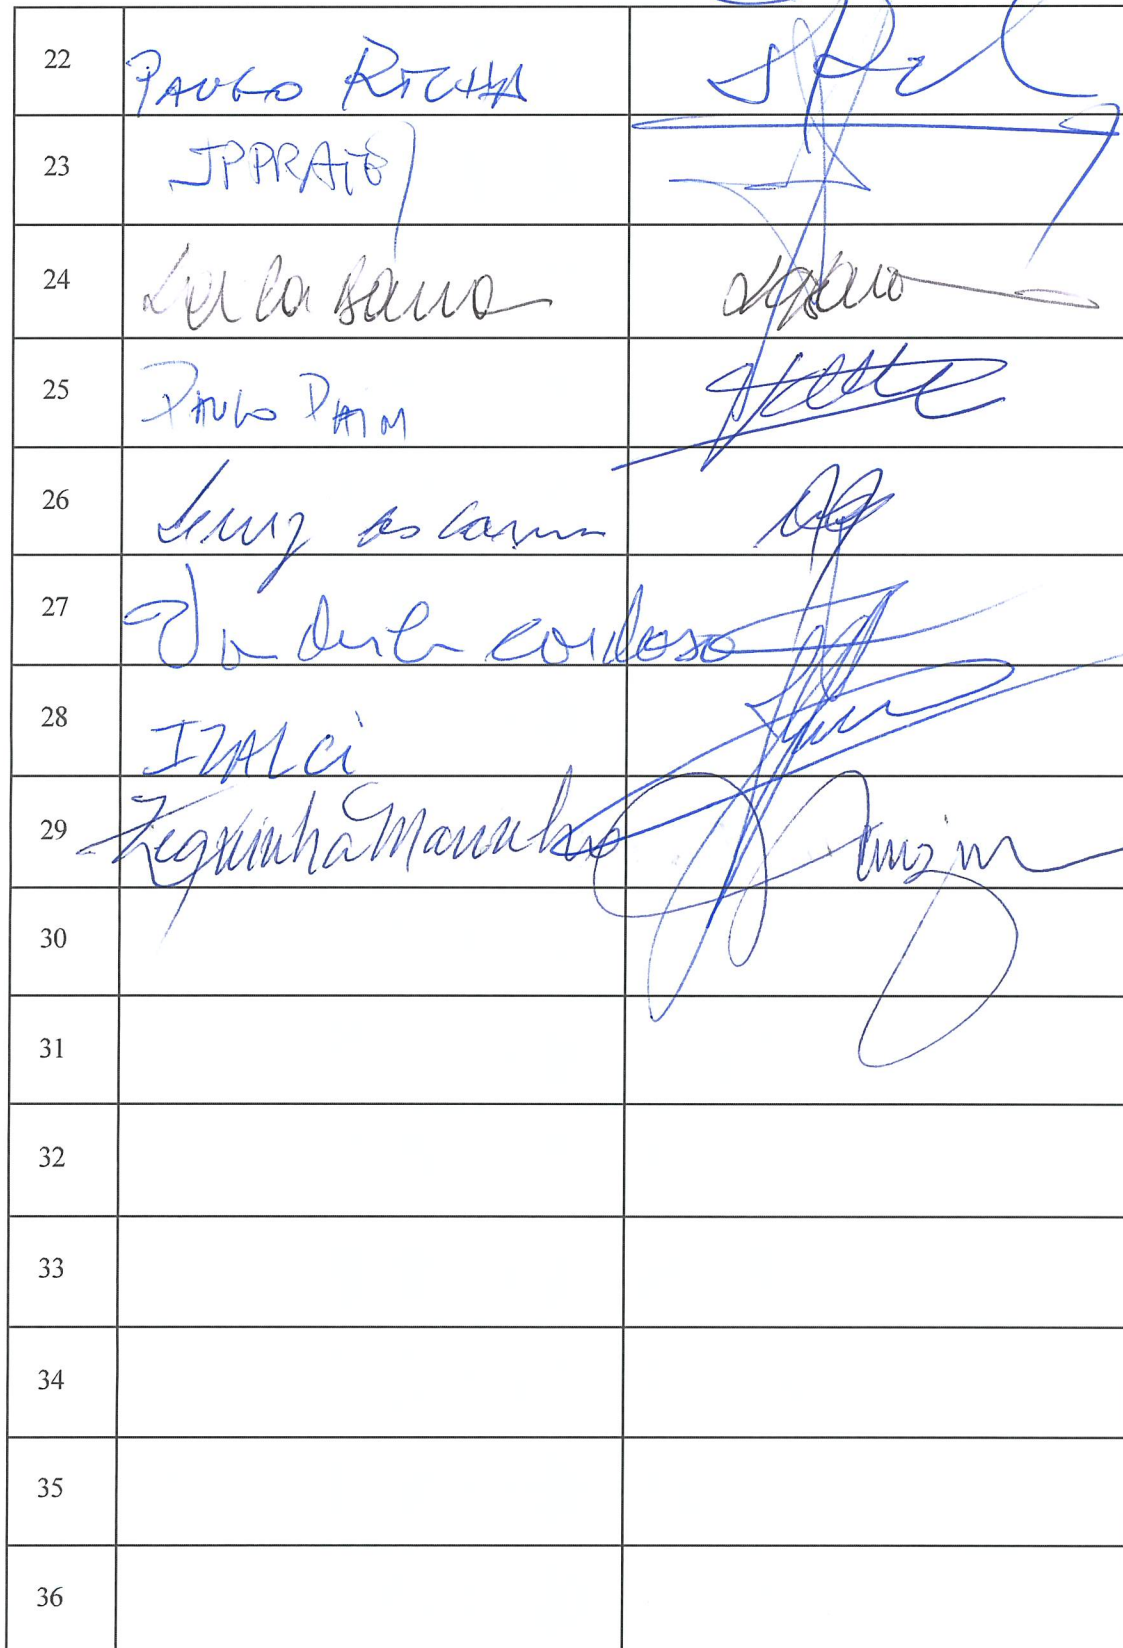 22 PAULO ROCHA
23 JPPRATES
24 Leila Barros
25 PAULO PAIM
26 Luiz do Carmo
27 Vanderlan Cardoso
28 IZALCI
29 Zequinha Marinho
30
31
32
33
34
35
36